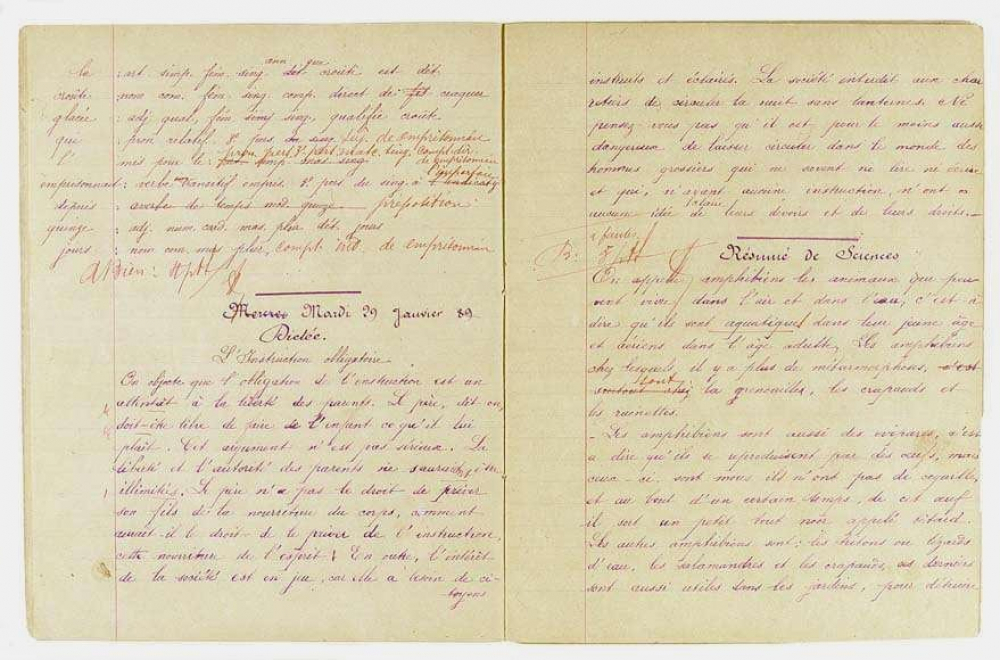 la : art. simp. fém. sing. ann. que croûte est dét.
croûte nom com. fém. sing. comp. direct de fit craquer
glacée : adj. qual. fém. sing. qualifie croûte
qui : pron. relatif. 3e pers. du sing. suj. de emprisonnait
l' mis pour le : pron. pers. 3e pers. masc. sing. compl. dir. de emprisonnait
emprisonnait : verbe transitif empris. 3e pers. du sing. à l'imparfait l'indicatif
depuis : averbe de temps mod. quinze. préposition
quinze : adj. num. card. mas. plur. dét. jours
jours : nom com. mas. plur. compl. ind. de emprisonnait
A Bien : 4 pts
Mercre Mardi 29 Janvier 89
Dictée.
L'Instruction obligatoire
On objecte que l'obligation de l'instruction est un
attentât à la liberté des parents. Le père, dit-on,
doit-être libre de faire de l'enfant ce qu'il lui
plaît. Cet argument n'est pas sérieux. La
liberté et l'autorité des parents ne sauraient être
illimités. Le père n'a pas le droit de priver
son fils de la nourriture du corps, comment
aurait-il le droit de le priver de l'instruction,
cette nourriture de l'esprit ! En outre, l'intérêt
de la société est en jeu, car elle a besoin de ci-
toyens
instruits et éclairés. La société interdit aux char
retiers de circuler la nuit sans lanternes. Ne
pensez-vous pas qu'il est pour le moins aussi
dangereux de laisser circuler dans le monde des
hommes grossiers qui ne savent ne lire ne écrire
et qui, n'ayant aucune instruction, n'ont
aucune idée claire de leurs devoirs et de leurs droits.
fautes
B : 5
Résumé de Sciences
On appelle amphibiens les animaux que peu
vent vivre dans l'air et dans l'eau, c'est à
dire qu'ils sont aquatiques dans leur jeune âge
et aériens dans l'âge adulte. Les amphibiens
chez lesquels il y a plus de métamorphoses, c'est
surtout chez sont la grenouilles, les crapauds et
les rainettes.
- Les amphibiens sont aussi des ovipares, c'est
à dire qu'ils se reproduisent par des œufs, mais
ceux-ci sont mous ils n'ont pas de coquille,
et au bout d'un certain temps, de cet œuf
il sort un petit tout noir appelé têtard.
Les autres amphibiens sont : les tritons ou lézards
d'eau, les salamandres et les crapauds, ces derniers
sont aussi utiles dans les jardins, pour détruire